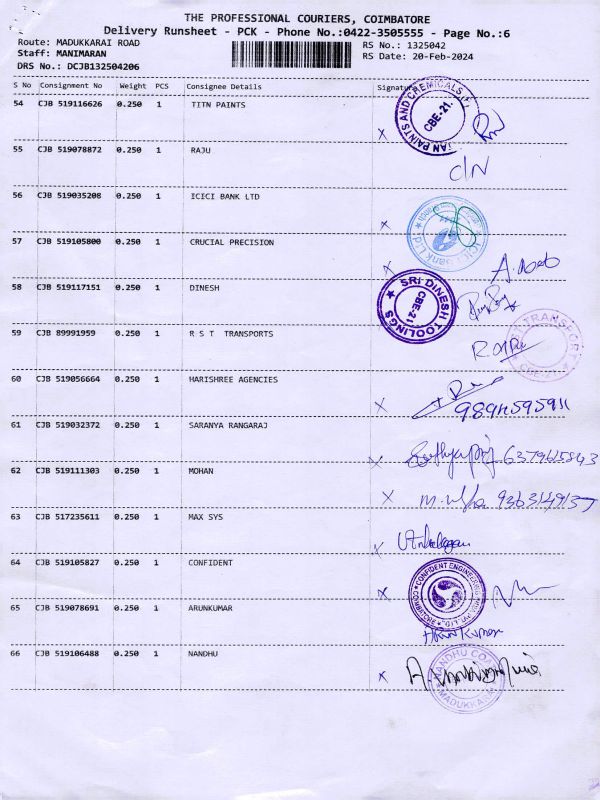 THE PROFESSIONAL COURIERS, COIMBATORE
Delivery Runsheet - PCK - Phone No.:0422-3505555 - Page No.:6
Route: MADUKKARAI ROAD
Staff: MANIMARAN
DRS No.: DCJB132504206
RS No.: 1325042
RS Date: 20-Feb-2024
S No Consignment No Weight PCS Consignee Details Signature
54 CJB 519116626 0.250 1 TITN PAINTS
PAINTS AND CHEMICALS CBE-21.
55 CJB 519078872 0.250 1 RAJU
C/N
56 CJB 519035208 0.250 1 ICICI BANK LTD
57 CJB 519105800 0.250 1 CRUCIAL PRECISION
58 CJB 519117151 0.250 1 DINESH
SRI DINESH TOOLINGS CBE-21
59 CJB 89991959 0.250 1 R S T TRANSPORTS
TRANSPORT CBE-21
60 CJB 519056664 0.250 1 HARISHREE AGENCIES
61 CJB 519032372 0.250 1 SARANYA RANGARAJ
62 CJB 519111303 0.250 1 MOHAN
63 CJB 517235611 0.250 1 MAX SYS
64 CJB 519105827 0.250 1 CONFIDENT
CONFIDENT ENGINEERING
65 CJB 519078691 0.250 1 ARUNKUMAR
Arun Kumar
66 CJB 519106488 0.250 1 NANDHU
NANDHU MADUKKARAI